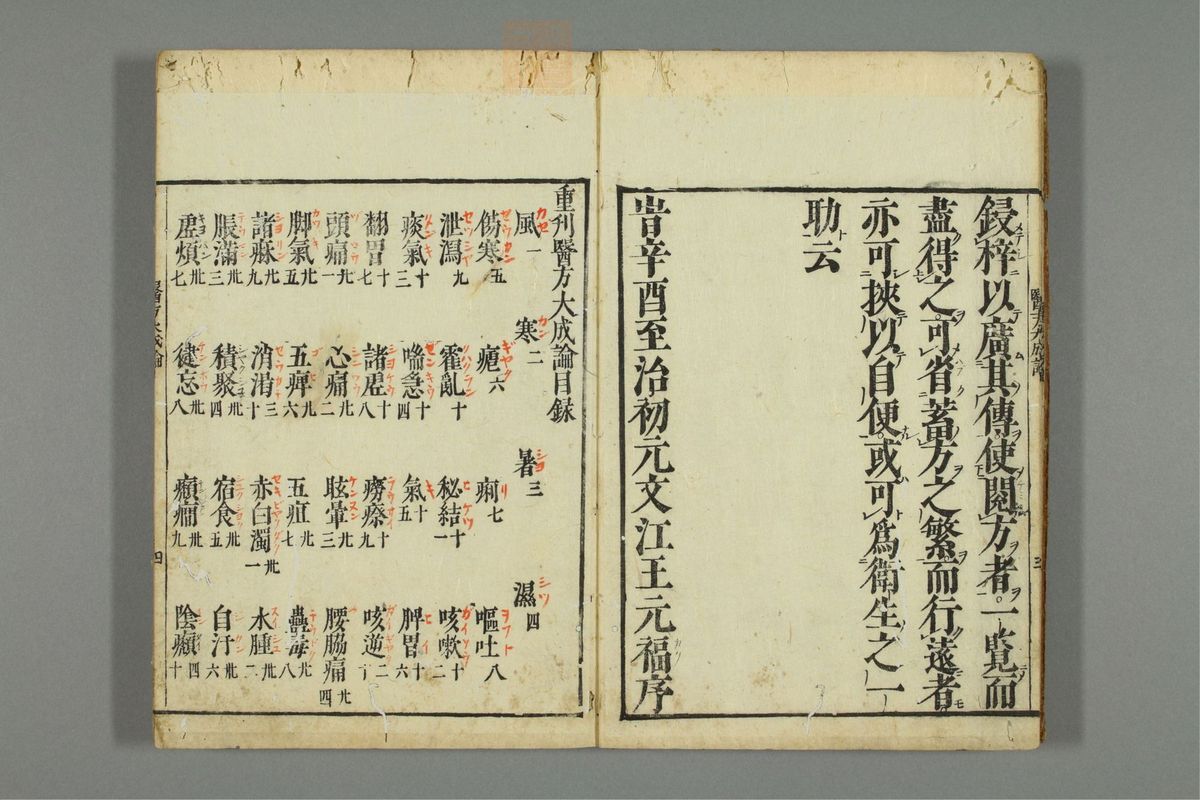 鋟梓以廣其傳使閱方者一覧而
盡得之可省蓄方之繁而行遠者
亦可挾以自便或可爲衛生之一
助云
旹辛酉至治初元文江王元福序
三
重刊醫方大成論目録
風一　寒二　暑三　濕四
傷寒五　瘧六　痢七　嘔吐八
泄瀉九　霍亂十　秘結十一　咳嗽十二
痰氣十三　喘急十四　氣十五　脾胃十六
翻胃十七　諸虚十八　癆瘵十九　咳逆二十
頭痛廿一　心痛廿二　眩暈廿三　腰脇痛廿四
脚氣廿五　五痺廿六　五疸廿七　蠱毒廿八
諸淋廿九　消渇三十　赤白濁卅一　水腫卅二
脹滿卅三　積聚卅四　宿食卅五　自汗卅六
虚煩卅七　健忘卅八　癲癇卅九　陰㿗四十
醫方大成論
四